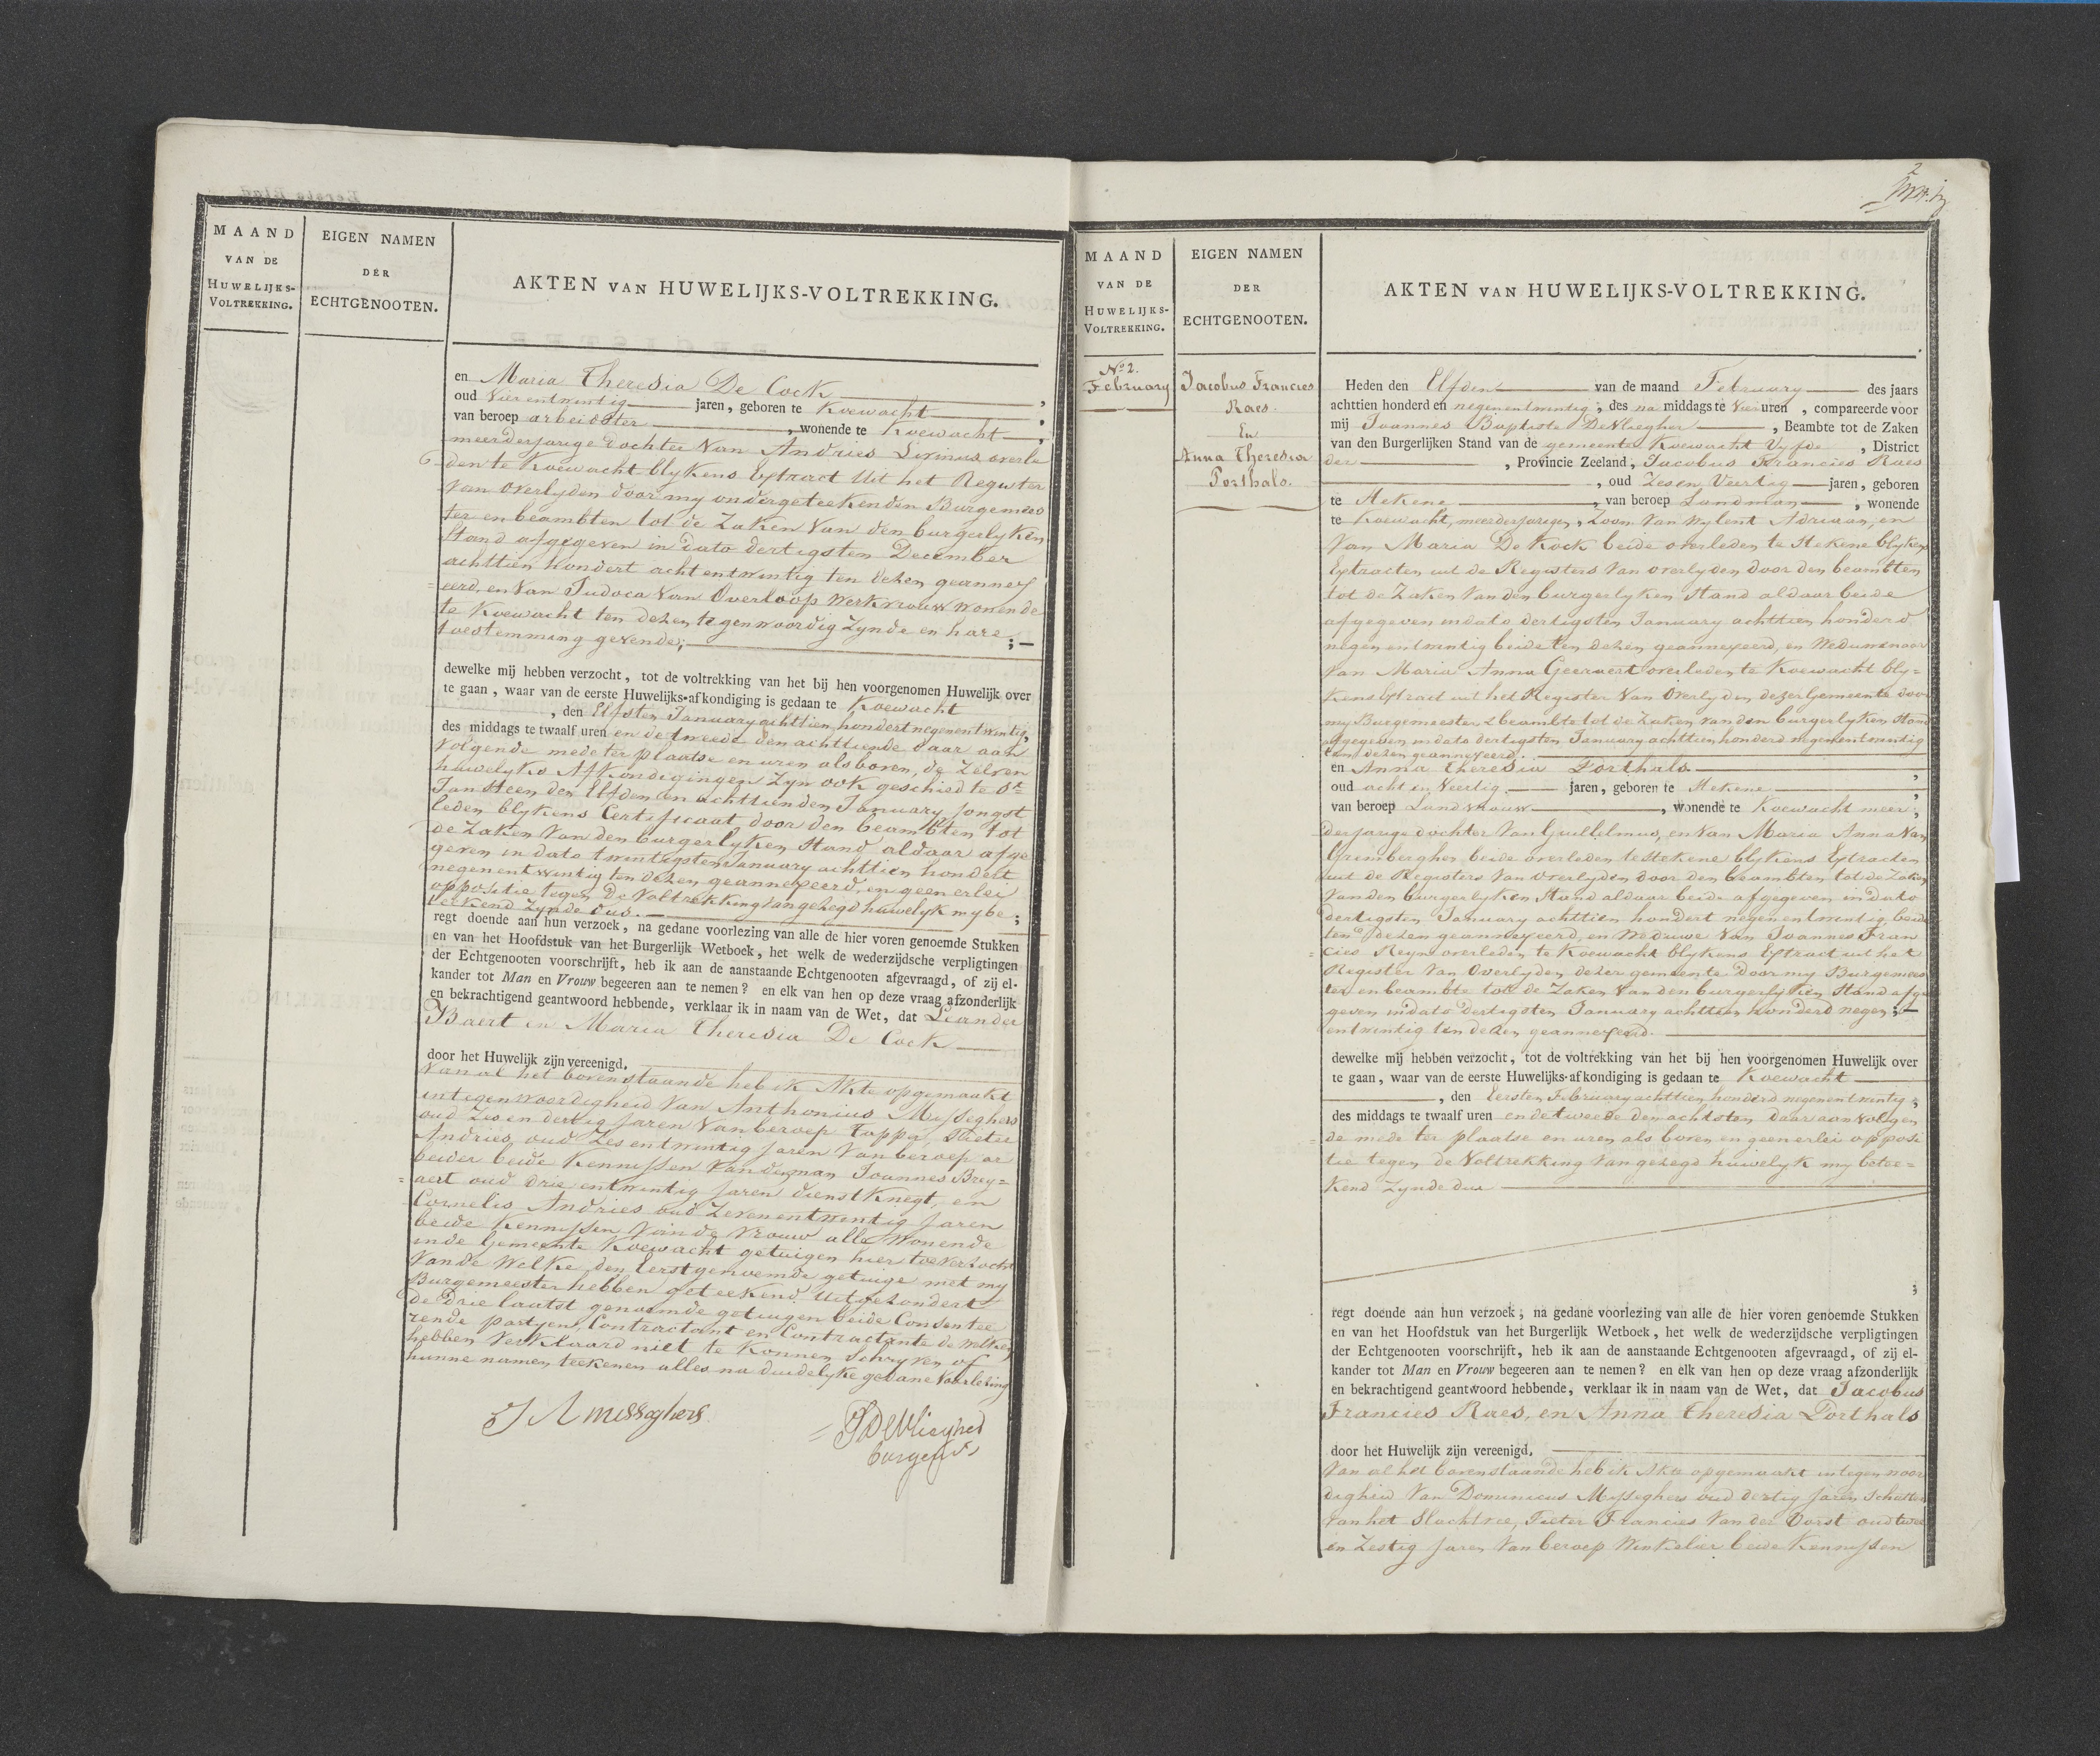 MAAND
VAN DE
HUWELIJKS-
VOLTREKKING.
EIGEN NAMEN
DER
ECHTGENOOTEN.
AKTEN VAN HUWELIJKS-VOLTREKKING.
en Maria Theresia De Cock
oud Vierentwintig jaren, geboren te Koewacht,
van beroep arbeidster, wonende te Koewacht;
meerderjarige dochter Van Andries Livinus overle
den te Koewacht blykens Extract Uit het Register
Van Overlyden door my ondergeteekenden Burgemees
ter en beambten tot de Zaken Van den burgerlyken
Stand afgegeven in dato dertigsten December
achttien hondert achtentwintig ten dezen geannex
eerd, en Van Judoca Van Overloop Werkvrouw Wonende
te Koewacht ten dezen tegenwoordig Zynde en hare
toestemming gevende; ;
dewelke mij hebben verzocht, tot de voltrekking van het bij hen voorgenomen Huwelijk over
te gaan, waar van de eerste Huwelijks-afkondiging is gedaan te Koewacht
, den Elfsten January achttien hondert negenentwintig,
des middags te twaalf uren en de tweede den achttiende daar aan
Volgende mede ter plaatse en uren als boven, de Zelven
huwelyks Afkondigingen Zyn ook geschied te St
Jansteen den Elfden en achttienden January jongst
leden blykens Certificaat door den beambten tot
de Zaken Van den burgerlyken Stand aldaar afge
geven in dato twintigsten January achttien hondert
negenentwintig ten dezen geannexeerd, en geenerlei
oppositie tegen De Voltrekking van gezegd huwelyk my be;
teekend Zynde dus.
regt doende aan hun verzoek, na gedane voorlezing van alle de hier voren genoemde Stukken
en van het Hoofdstuk van het Burgerlijk Wetboek, het welk de wederzijdsche verpligtingen
der Echtgenooten voorschrijft, heb ik aan de aanstaande Echtgenooten afgevraagd, of zij el-
kander tot Man en Vrouw begeeren aan te nemen? en elk van hen op deze vraag afzonderlijk
en bekrachtigend geantwoord hebbende, verklaar ik in naam van de Wet, dat Leander
Baert en Maria Theresia De Cock
door het Huwelijk zijn vereenigd.
Van al het bovenstaande heb ik Akte opgemaakt
in tegenwoordigheid Van Anthonius Mysseghers
oud Zesendertig jaren Van beroep Tapper, Pieter
Andries oud Zesentwintig jaren Van beroep ar
beider beide Kennissen Van de man Joannes Brey=
aert oud drieentwintig jaren dienstknegt, en
Cornelis Andries oud Zevenentwentig Jaren
beide Kennissen Van de Vrouw alle Wonende
in de Gemeente Koewacht getuigen hier toe verzocht
Van de Welke den Eerstgenoemde getuige met my
Burgemeester hebben geteekend Uitgezondert
de Drie laatst genoemde getuigen beide Consentee
rende partyen, Contractant en Contractante de welken
hebben Verklaard niet te Konnen Schryven of
hunne namen teekenen alles na duidelyke gedane Voorlezing
J A misseghers
JB DeVliegher
burgemr
MAAND
VAN DE
HUWELIJKS-
VOLTREKKING.
EIGEN NAMEN
DER
ECHTGENOOTEN.
AKTEN VAN HUWELIJKS-VOLTREKKING.
2
No 2.
February
Jacobus Francies
Raes.
En
Anna Theresia
Porthals.
Heden den Elfden van de maand February des jaars
achttien honderd en negenentwintig, des na middags te Vier uren, compareerde voor
mij Joannes Baptiste DeVliegher, Beambte tot de Zaken
van den Burgerlijken Stand van de gemeente Koewacht Vyfde, District
der, Provincie Zeeland, Jacobus Francies Raes
, oud Zesen Veertig jaren, geboren
te Stekene, van beroep Landman, wonende
te Koewacht, meerderjarigen, Zoon Van Wylent Adriaan, en
Van Maria De Kock beide overleden te Stekene blykens
Extracten uit de Registers Van overlyden door den beambten
tot de Zaken Van den burgerlyken Stand aldaar beide
afgegeven in dato dertigsten January achttien honderd
negenentwintig beide ten dezen geannexeerd, en Weduwenaar
Van Maria Anna Geernaert overleden te Koewacht bly=
kens Extract uit het Register Van Overlyden dezer Gemeente door
my Burgemeester & beambte tot de Zaken van den burgerlyken Stand
afgegeven in dato dertigsten January achttien honderd negenentwintig
ten dezen geannexeerd.
en Anna Theresia Porthals,
oud acht en Veertig jaren, geboren te Stekene,
van beroep Landvrouw, wonende te Koewacht meer;
derjarige dochter Van Guillelmus, en Van Maria Anna Van
Grimberghen beide overleden te Stekene blykens Extracten
uit de Registers Van overlyden door den beambten tot de Zaken
Van den burgerlyken Stand aldaar beide afgegeven in dato
dertigsten January achttien hondert negenentwintig beide
ten dezen geannexeerd, en Weduwe Van Joannes Fran
cies Reyn overleden te Koewacht blykens Extract uit het
Register Van Overlyden dezer gemeente Door my Burgemees
ter en beambte tot de Zaken Van den burgerlyken Stand afge
geven in dato Dertigsten January achttien honderd negen;
entwintig ten dezen geannexeerd.
dewelke mij hebben verzocht, tot de voltrekking van het bij hen voorgenomen Huwelijk over
te gaan, waar van de eerste Huwelijks-afkondiging is gedaan te Koewacht
, den Eersten February achttien honderd negenentwintig,
des middags te twaalf uren en de tweede den achtsten daar aan Volgen
de mede ter plaatse en uren als boven en geenerlei opposi
tie tegen de Voltrekking Van gezegd huwelyk my betee=
kend Zynde dus
;
regt doende aan hun verzoek, na gedane voorlezing van alle de hier voren genoemde Stukken
en van het Hoofdstuk van het Burgerlijk Wetboek, het welk de wederzijdsche verpligtingen
der Echtgenooten voorschrijft, heb ik aan de aanstaande Echtgenooten afgevraagd, of zij el-
kander tot Man en Vrouw begeeren aan te nemen? en elk van hen op deze vraag afzonderlijk
en bekrachtigend geantwoord hebbende, verklaar ik in naam van de Wet, dat Jacobus
Francies Raes, en Anna Theresia Porthals
door het Huwelijk zijn vereenigd.
Van al het bovenstaande heb ik Akte opgemaakt in tegenwoor
digheid Van Dominicus Mysseghers oud dertig Jaren Schatter
Van het Slachtvee, Pieter Francies Van der Vorst oud twee
en Zestig Jaren Van beroep Winkelier beide Kennissen